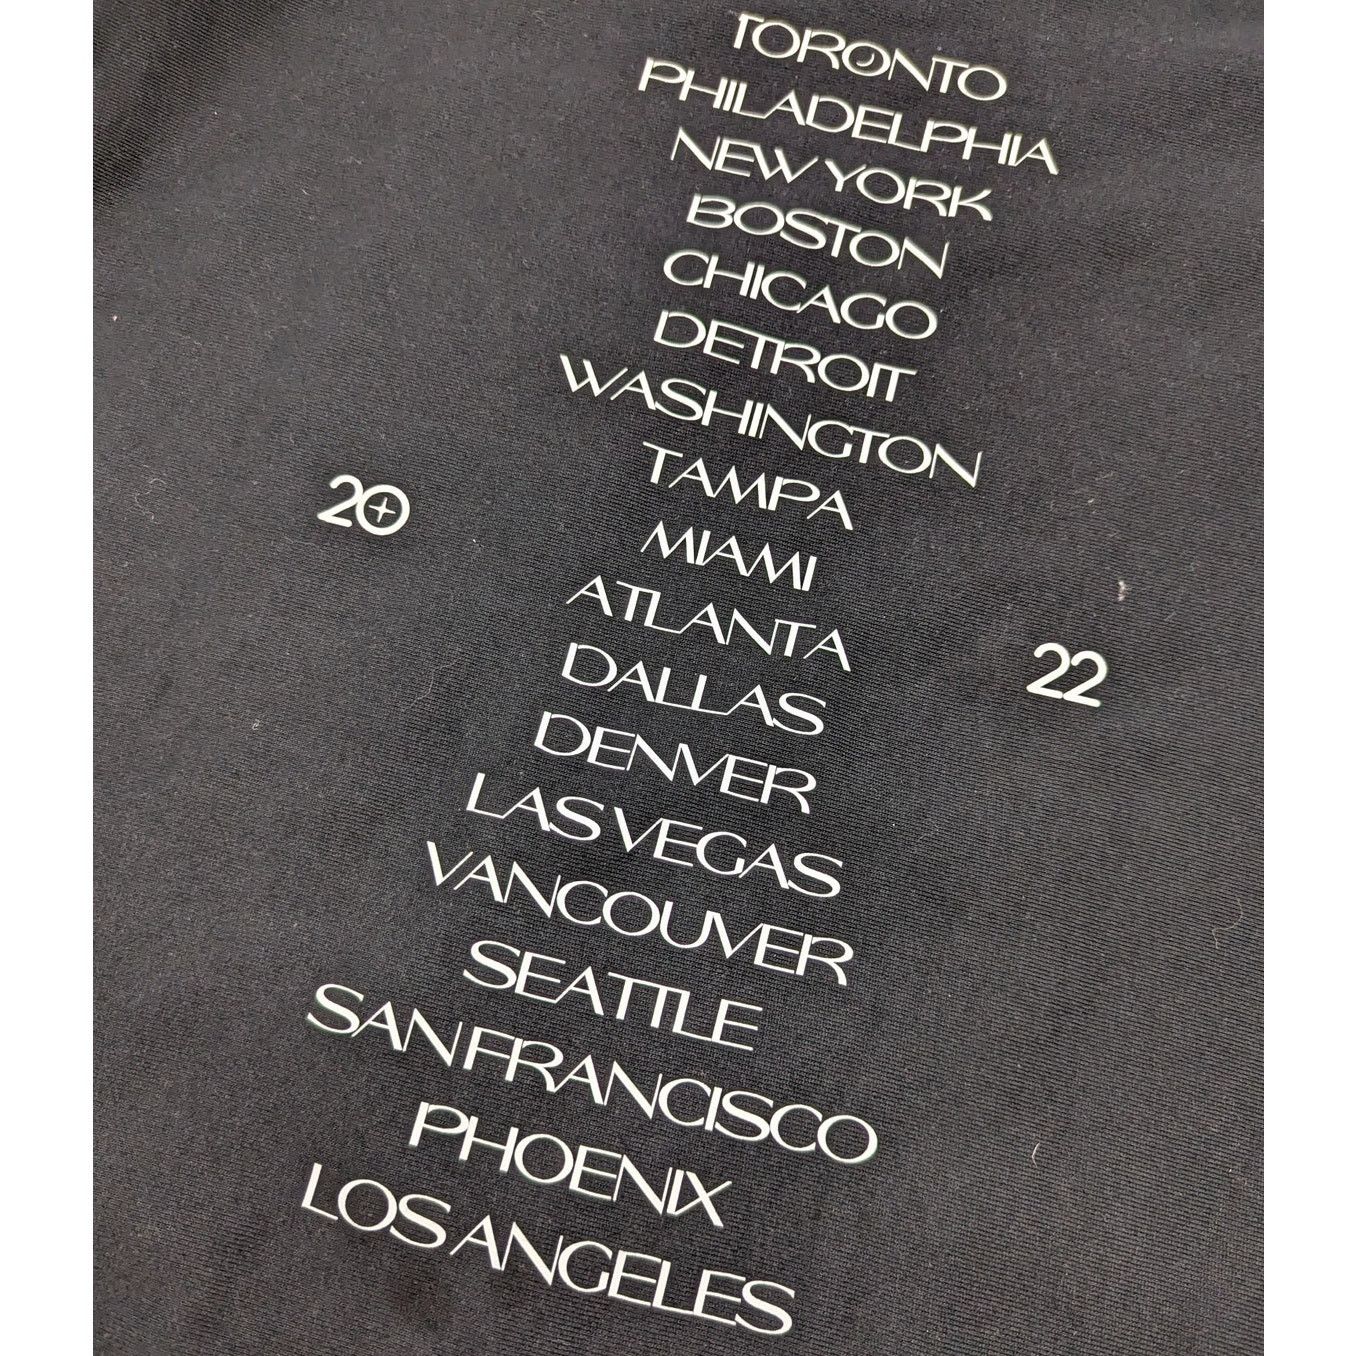 TORONTO
PHILADELPHIA
NEW YORK
BOSTON
CHICAGO
DETROIT
WASHINGTON
TAMPA
20
MIAMI
ATLANTA
22
DALLAS
DENVER
LAS VEGAS
VANCOUVER
SEATTLE
SAN FRANCISCO
PHOENIX
LOS ANGELES